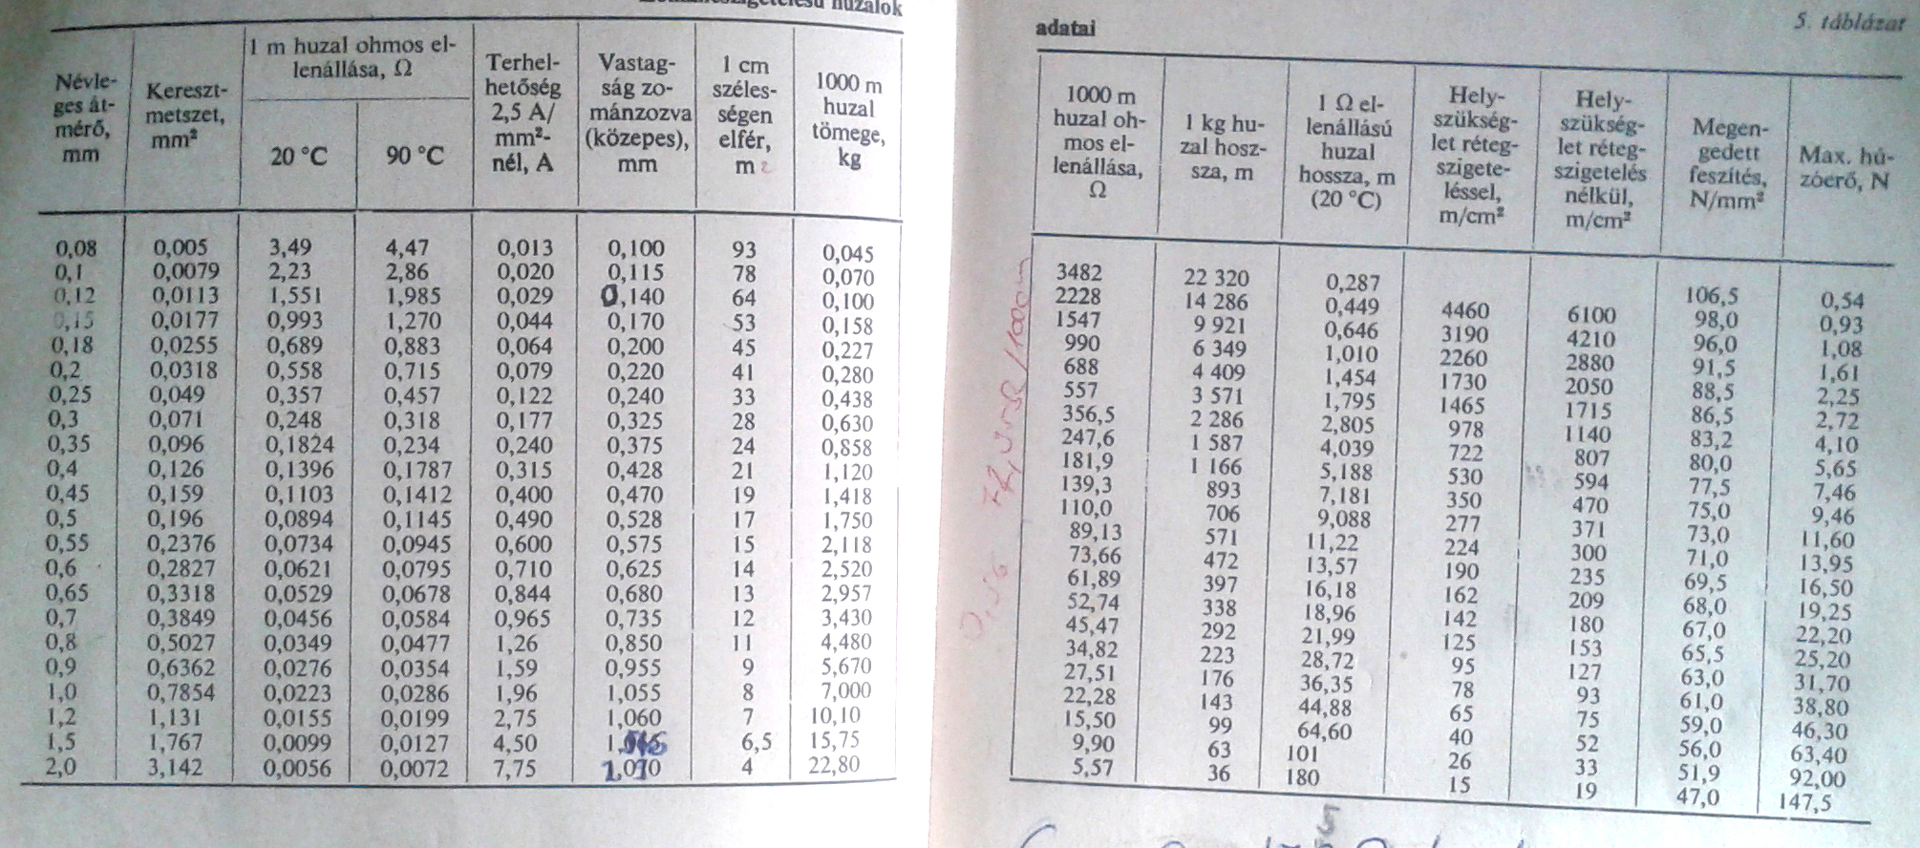 huzalok
Névle-
ges át-
mérő,
mm
Kereszt-
metszet,
mm²
1 m huzal ohmos el-
lenállása, Ω
20 °C
90 °C
Terhel-
hetőség
2,5 A/
mm²-
nél, A
Vastag-
ság zo-
mánzozva
(közepes),
mm
1 cm
széles-
ségen
elfér,
m
1000 m
huzal
tömege,
kg
0,08 0,005 3,49 4,47 0,013 0,100 93 0,045
0,1 0,0079 2,23 2,86 0,020 0,115 78 0,070
0,12 0,0113 1,551 1,985 0,029 0,140 64 0,100
0,15 0,0177 0,993 1,270 0,044 0,170 53 0,158
0,18 0,0255 0,689 0,883 0,064 0,200 45 0,227
0,2 0,0318 0,558 0,715 0,079 0,220 41 0,280
0,25 0,049 0,357 0,457 0,122 0,240 33 0,438
0,3 0,071 0,248 0,318 0,177 0,325 28 0,630
0,35 0,096 0,1824 0,234 0,240 0,375 24 0,858
0,4 0,126 0,1396 0,1787 0,315 0,428 21 1,120
0,45 0,159 0,1103 0,1412 0,400 0,470 19 1,418
0,5 0,196 0,0894 0,1145 0,490 0,528 17 1,750
0,55 0,2376 0,0734 0,0945 0,600 0,575 15 2,118
0,6 0,2827 0,0621 0,0795 0,710 0,625 14 2,520
0,65 0,3318 0,0529 0,0678 0,844 0,680 13 2,957
0,7 0,3849 0,0456 0,0584 0,965 0,735 12 3,430
0,8 0,5027 0,0349 0,0477 1,26 0,850 11 4,480
0,9 0,6362 0,0276 0,0354 1,59 0,955 9 5,670
1,0 0,7854 0,0223 0,0286 1,96 1,055 8 7,000
1,2 1,131 0,0155 0,0199 2,75 1,060 7 10,10
1,5 1,767 0,0099 0,0127 4,50 6,5 15,75
2,0 3,142 0,0056 0,0072 7,75 4 22,80
adatai
5. táblázat
1000 m
huzal oh-
mos el-
lenállása,
Ω
1 kg hu-
zal hosz-
sza, m
1 Ω el-
lenállású
huzal
hossza, m
(20 °C)
Hely-
szükség-
let réteg-
szigete-
léssel,
m/cm²
Hely-
szükség-
let réteg-
szigetelés
nélkül,
m/cm²
Megen-
gedett
feszítés,
N/mm²
Max. hú-
zóerő, N
3482 22 320 0,287 106,5 0,54
2228 14 286 0,449 4460 6100 98,0 0,93
1547 9 921 0,646 3190 4210 96,0 1,08
990 6 349 1,010 2260 2880 91,5 1,61
688 4 409 1,454 1730 2050 88,5 2,25
557 3 571 1,795 1465 1715 86,5 2,72
356,5 2 286 2,805 978 1140 83,2 4,10
247,6 1 587 4,039 722 807 80,0 5,65
181,9 1 166 5,188 530 594 77,5 7,46
139,3 893 7,181 350 470 75,0 9,46
110,0 706 9,088 277 371 73,0 11,60
89,13 571 11,22 224 300 71,0 13,95
73,66 472 13,57 190 235 69,5 16,50
61,89 397 16,18 162 209 68,0 19,25
52,74 338 18,96 142 180 67,0 22,20
45,47 292 21,99 125 153 65,5 25,20
34,82 223 28,72 95 127 63,0 31,70
27,51 176 36,35 78 93 61,0 38,80
22,28 143 44,88 65 75 59,0 46,30
15,50 99 64,60 40 52 56,0 63,40
9,90 63 101 26 33 51,9 92,00
5,57 36 180 15 19 47,0 147,5